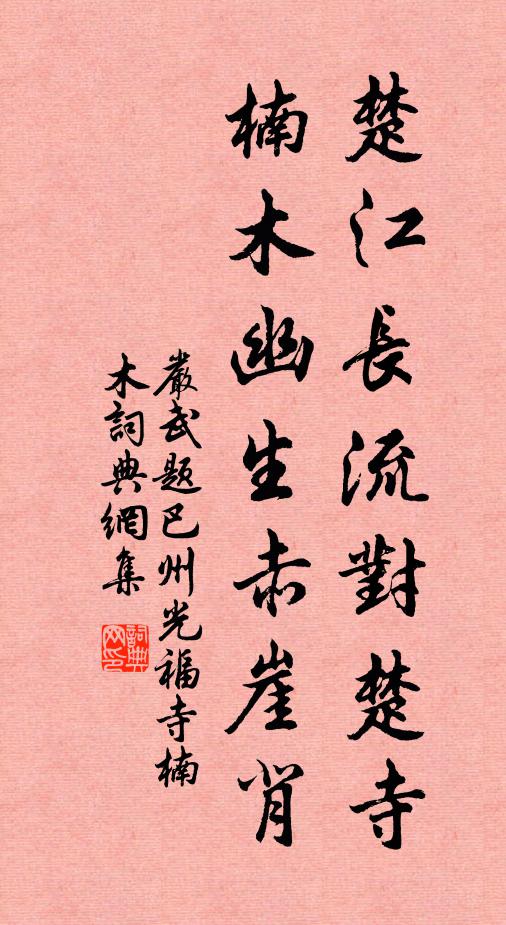 楚江長流對楚寺
楠木幽生赤崖背
嚴武題巴州光福寺楠
木詞典網集
詞典网印